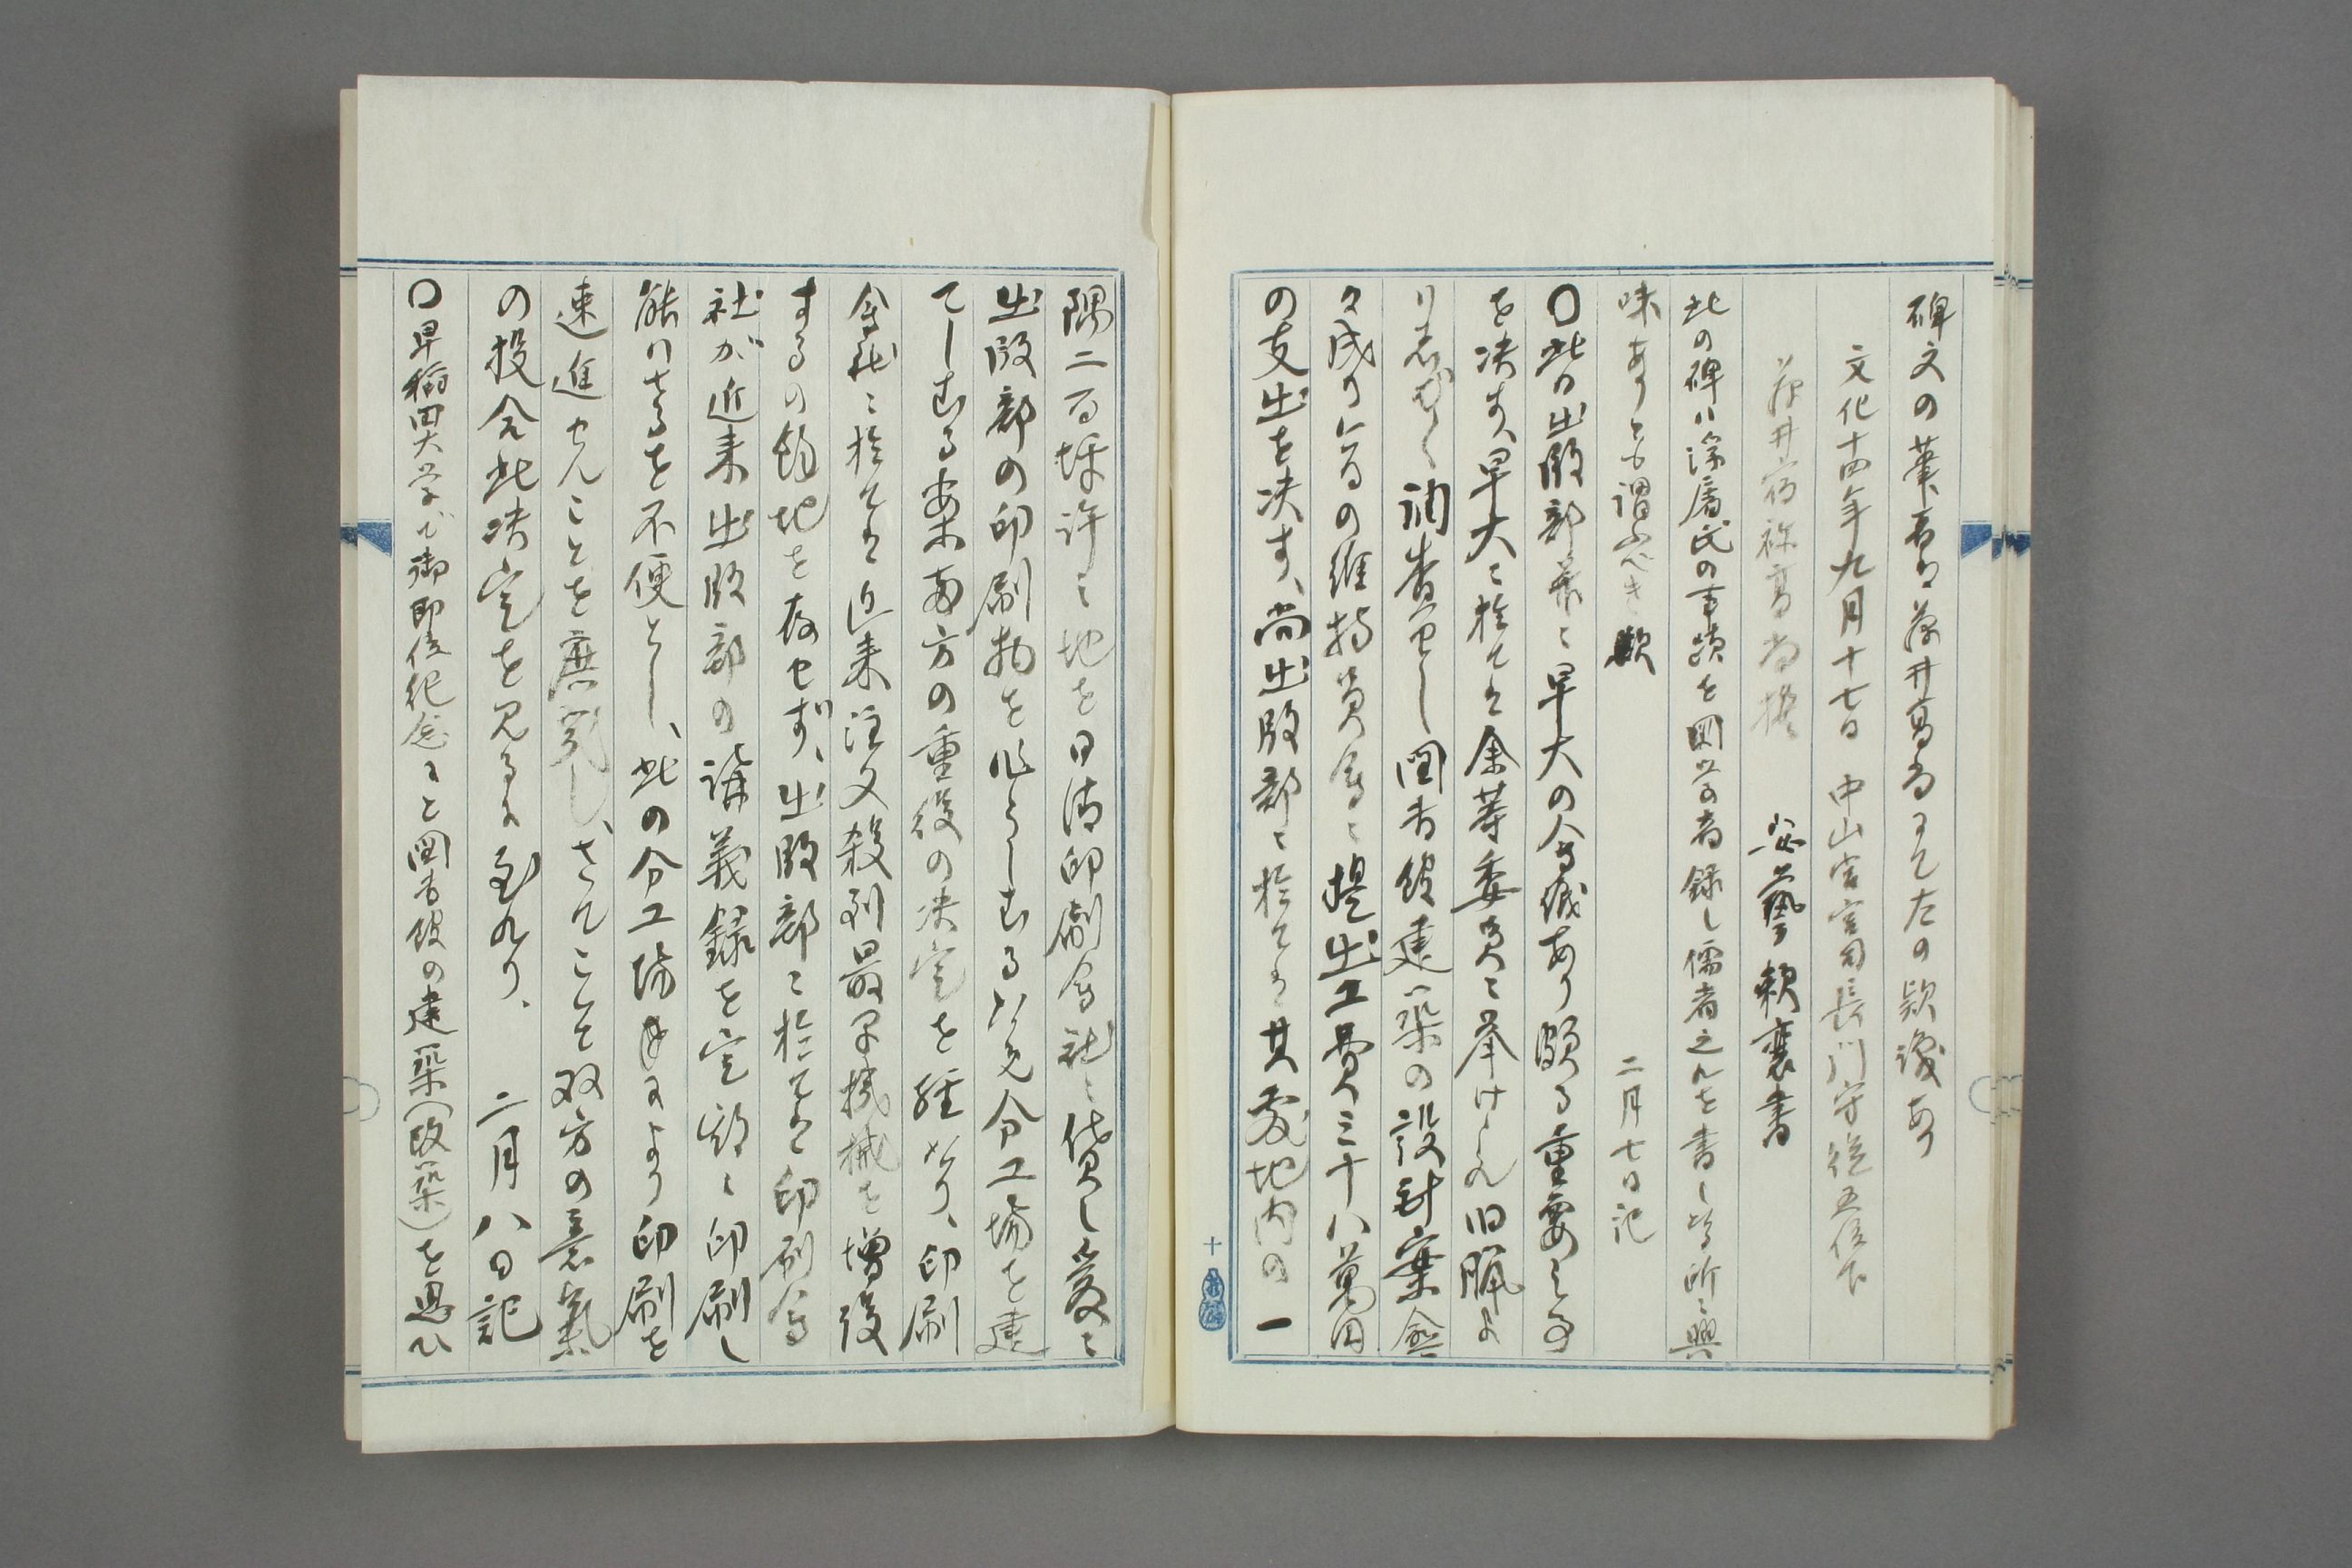 碑文の筆者は藤井高尚にして左の款識あり
文化十四年九月十七日 中山宮宮司長門守従五位下
藤井宿祢高尚撰 安藝 頼襄書
此の碑ハ深屬氏の事蹟を国学者録し儒者之れを書し
味ありとも謂ふべき歟 二月七日記
〇此日出版部并ニ早大の会議あり頗る重要の事
を决す、早大ニ於ては余等委員ニ挙けられ旧臘よ
調査せし図書館建築の設計案
の維持員会ニ提出工費三十八萬円
の支出を决す、尚出版部ニ於ては其敷地内の一
隅二百坪許ニ地を日清印刷会社ニ貸し爰ニ
出版部の印刷物を分工場を建
てしむる案両方の重役の决定を経たり、印刷
会社ニ於ては近来注文殺到最早機械を増設
するの餘地を存せず、出版部ニ於ては印刷会
社が近来出版部の講義録を定期ニ印刷し
能はざるを不便とし、此の分工場により印刷を
速進せんことを庶幾し、さてこそ双方の意氣
の投合此决定を見るに至れり、 二月八日記
〇早稲田大学で御即位紀念にと図書館の建築(改築)を思ひ